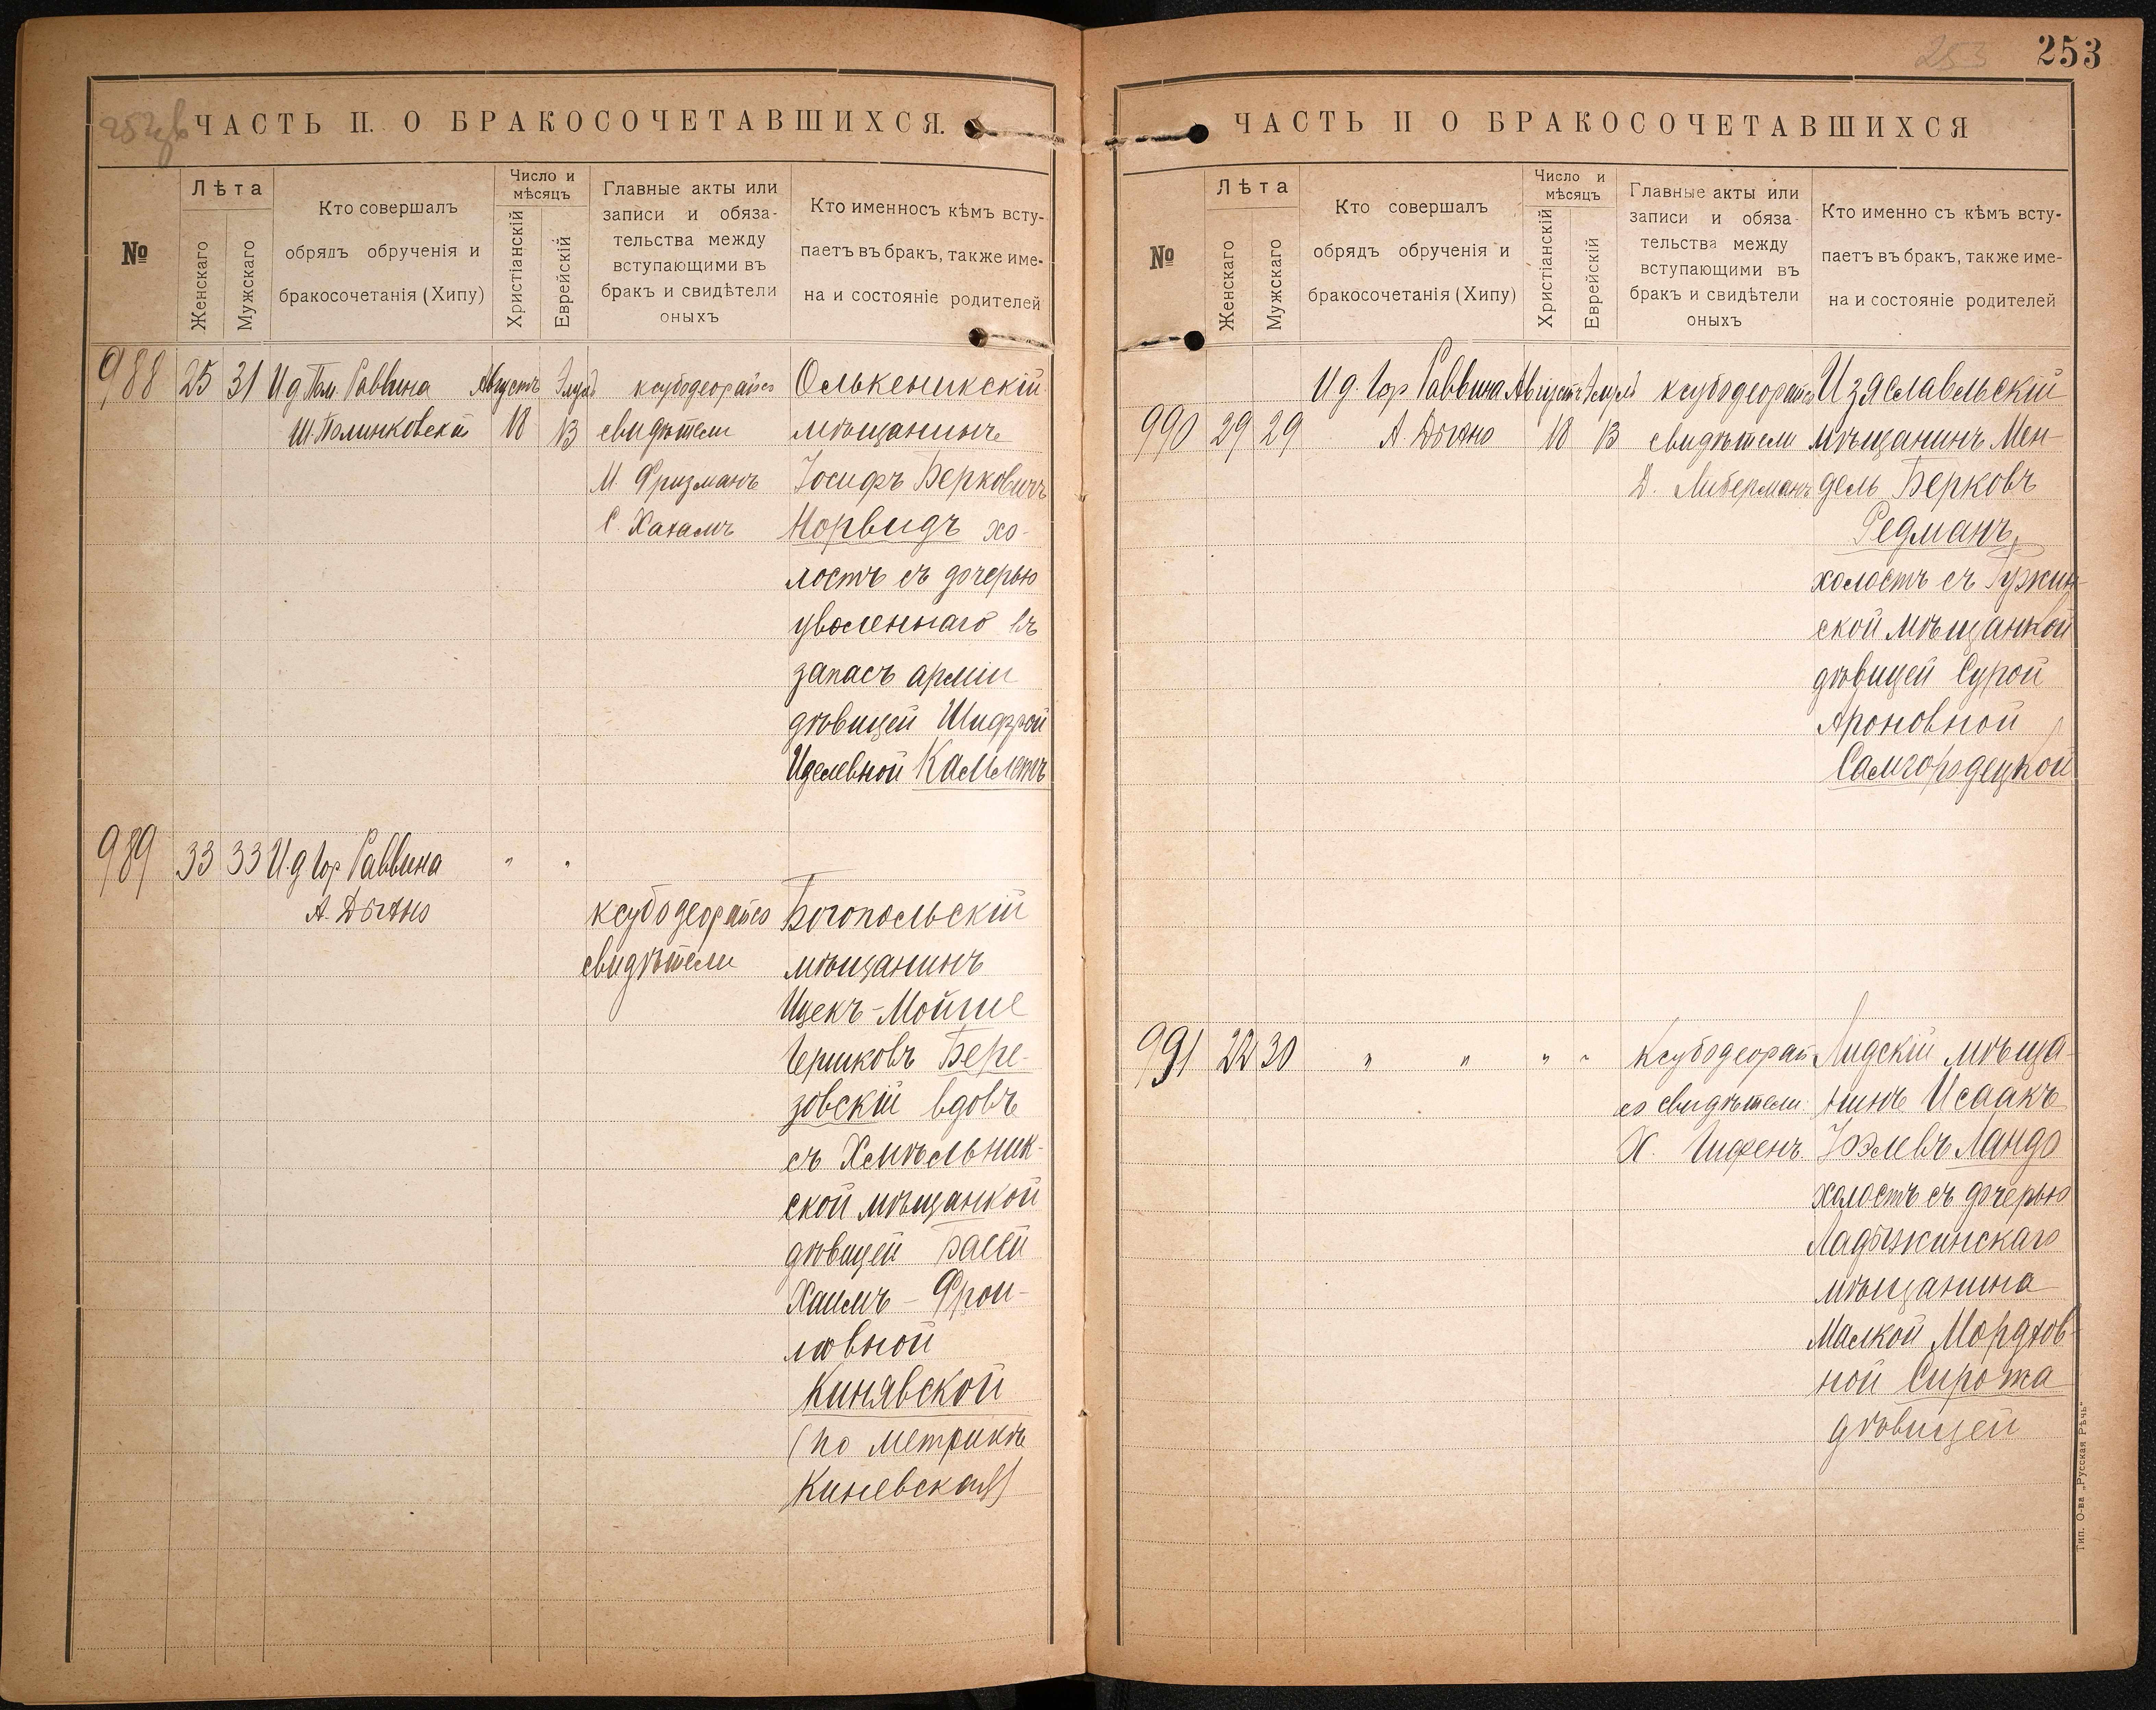 253
253
ЧАСТЬ II. О БРАКОСОЧЕТАВШИХСЯ.
№
Лѣта
Женскаго
Мужскаго
Кто совершалъ
обрядъ обрученія и
бракосочетанія (Хипу)
Число и
мѣсяцъ
Христіанскій
Еврейскій
Главные акты или
записи и обяза-
тельства между
вступающими въ
бракъ и свидѣтели
оныхъ
Кто именносъ кѣмъ всту-
паетъ въ бракъ, также име-
на и состояніе родителей
988 25 31 И д Пом. Раввина Августъ Элулъ ксубо деорайсо Олькеникскій
18 13 свидѣтели мѣщанинъ
М. Фризманъ Іосифъ Берковичъ
С. Хазамъ Норвидъ хо-
лостъ съ дочерью
уволеннаго въ
запасъ арміи
дѣвицей Шифрой
Иделевной
989 33 33 И.д Гор Раввина " "
А. Дыхно ксубо деорайсо Богопольскій
свидѣтели мѣщанинъ
Ицекъ-Мойше
Гершковъ Бере-
зовскій вдовъ
съ Хмѣльник-
ской мѣщанкой
дѣвицей Басей
Хаимъ-Фрои-
мовной
Кинявской
(по метрикѣ
Киневская)
ЧАСТЬ II О БРАКОСОЧЕТАВШИХСЯ
№
Лѣта
Женскаго
Мужскаго
Кто совершалъ
обрядъ обрученія и
бракосочетанія (Хипу)
Число и
мѣсяцъ
Христіанскій
Еврейскій
Главные акты или
записи и обяза-
тельства между
вступающими въ
бракъ и свидѣтели
оныхъ
Кто именно съ кѣмъ всту-
паетъ въ бракъ, также име-
на и состояніе родителей
И д. Гор Раввина Августъ Элулъ ксубо деорайсо Изяславльскій
990 29 29 А. Дыхно 18 13 свидѣтели мѣщанинъ Мен-
Д. Либерманъ дель Берковъ
Редманъ,
холостъ съ
ской мѣщанкой
дѣвицей Сурой
Ароновной
Самгородецкой
991 22 30 " " " " Ксубо деорай Лидскій мѣща-
со свидѣтели нинъ Исаакъ
Х. Юэлевъ Ландо
холостъ съ дочерью
Ладыжинскаго
мѣщанина
Малкой Мордхов-
ной Сирота
дѣвицей
Тип. О-ва „Русская Рѣчь"